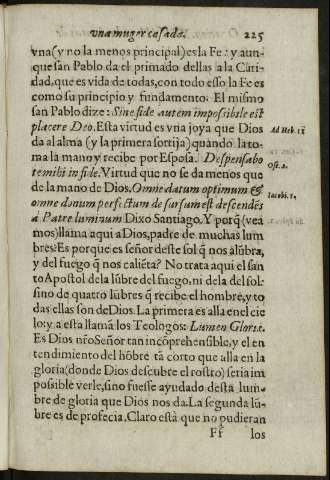 vna muger casada. 225
vna (y no la menos principal) es la Fe: y aun-
que san Pablo da el primado dellas a la Cari-
dad, que es vida de todas, con todo esso la Fe es
como su principio y fundamento. El mismo
san Pablo dize: Sine fide autem impossibile est
placere Deo. Esta virtud es vna joya que Dios
da al alma (y la primera sortija) quando la to-
ma la mano y recibe por Esposa. Despensabo
te mihi in fide. Virtud que no se da menos que
de la mano de Dios. Omne datum optimum &
omne donum perfectum de sursum est descendēs
á Patre luminum Dixo Santiago. Y porq̄ (vea
mos) llama aqui a Dios, padre de muchas lum
bres: Es porque es señor deste sol q̄ nos alūbra,
y del fuego q̄ nos caliēta? No trata aqui el san
to Apostol dela lūbre del fuego, ni dela del sol-
sino de quatro lūbres q̄ recibe el hombre, y to
das ellas son de Dios. La primera es alla en el cie
lo: y a esta llamā los Teologos: Lumen Gloriæ.
Es Dios nr̄o Señor tan incōprehensible, y el en
tendimiento del hōbre tā corto que alla en la
gloria (donde Dios descubre el rostro) seria im
possible verle, sino fuesse ayudado desta lum-
bre de gloria que Dios nos da. La segunda lū-
bre es de profecia. Claro està que no pudieran
Ff los
Ad Heb. 11
Ose. 2.
Iacobi. 1.